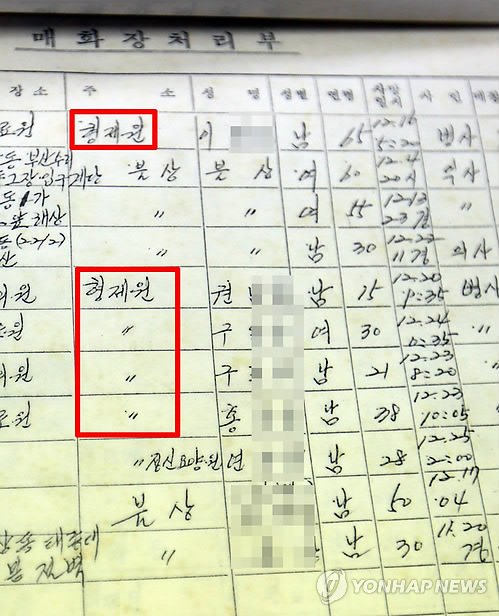 매화장처리부
장소 주 소 성 명 성별 연령 사망일시 사인
료원 형제원 이 남 65 12.16 5:20 병사
동 부산수리 불상 불상 여 60 12.4 20시 익사
동 1가 〃 〃 여 55 12.13 23경 〃
동(2가2) 〃 〃 남 30 12.22 11경 의사
의원 형제원 권 남 15 12.20 9:35 병사
의원 〃 구 여 30 12.24 6:35 〃
의원 〃 구 남 21 12.23 8:20 〃
료원 〃 홍 남 38 12.23 10:05 〃
〃정신요양원 연 남 28 12.25 2:00
불상 남 50 12.17 .04
해운대 〃 남 30 11.20 경
YONHAP NEWS